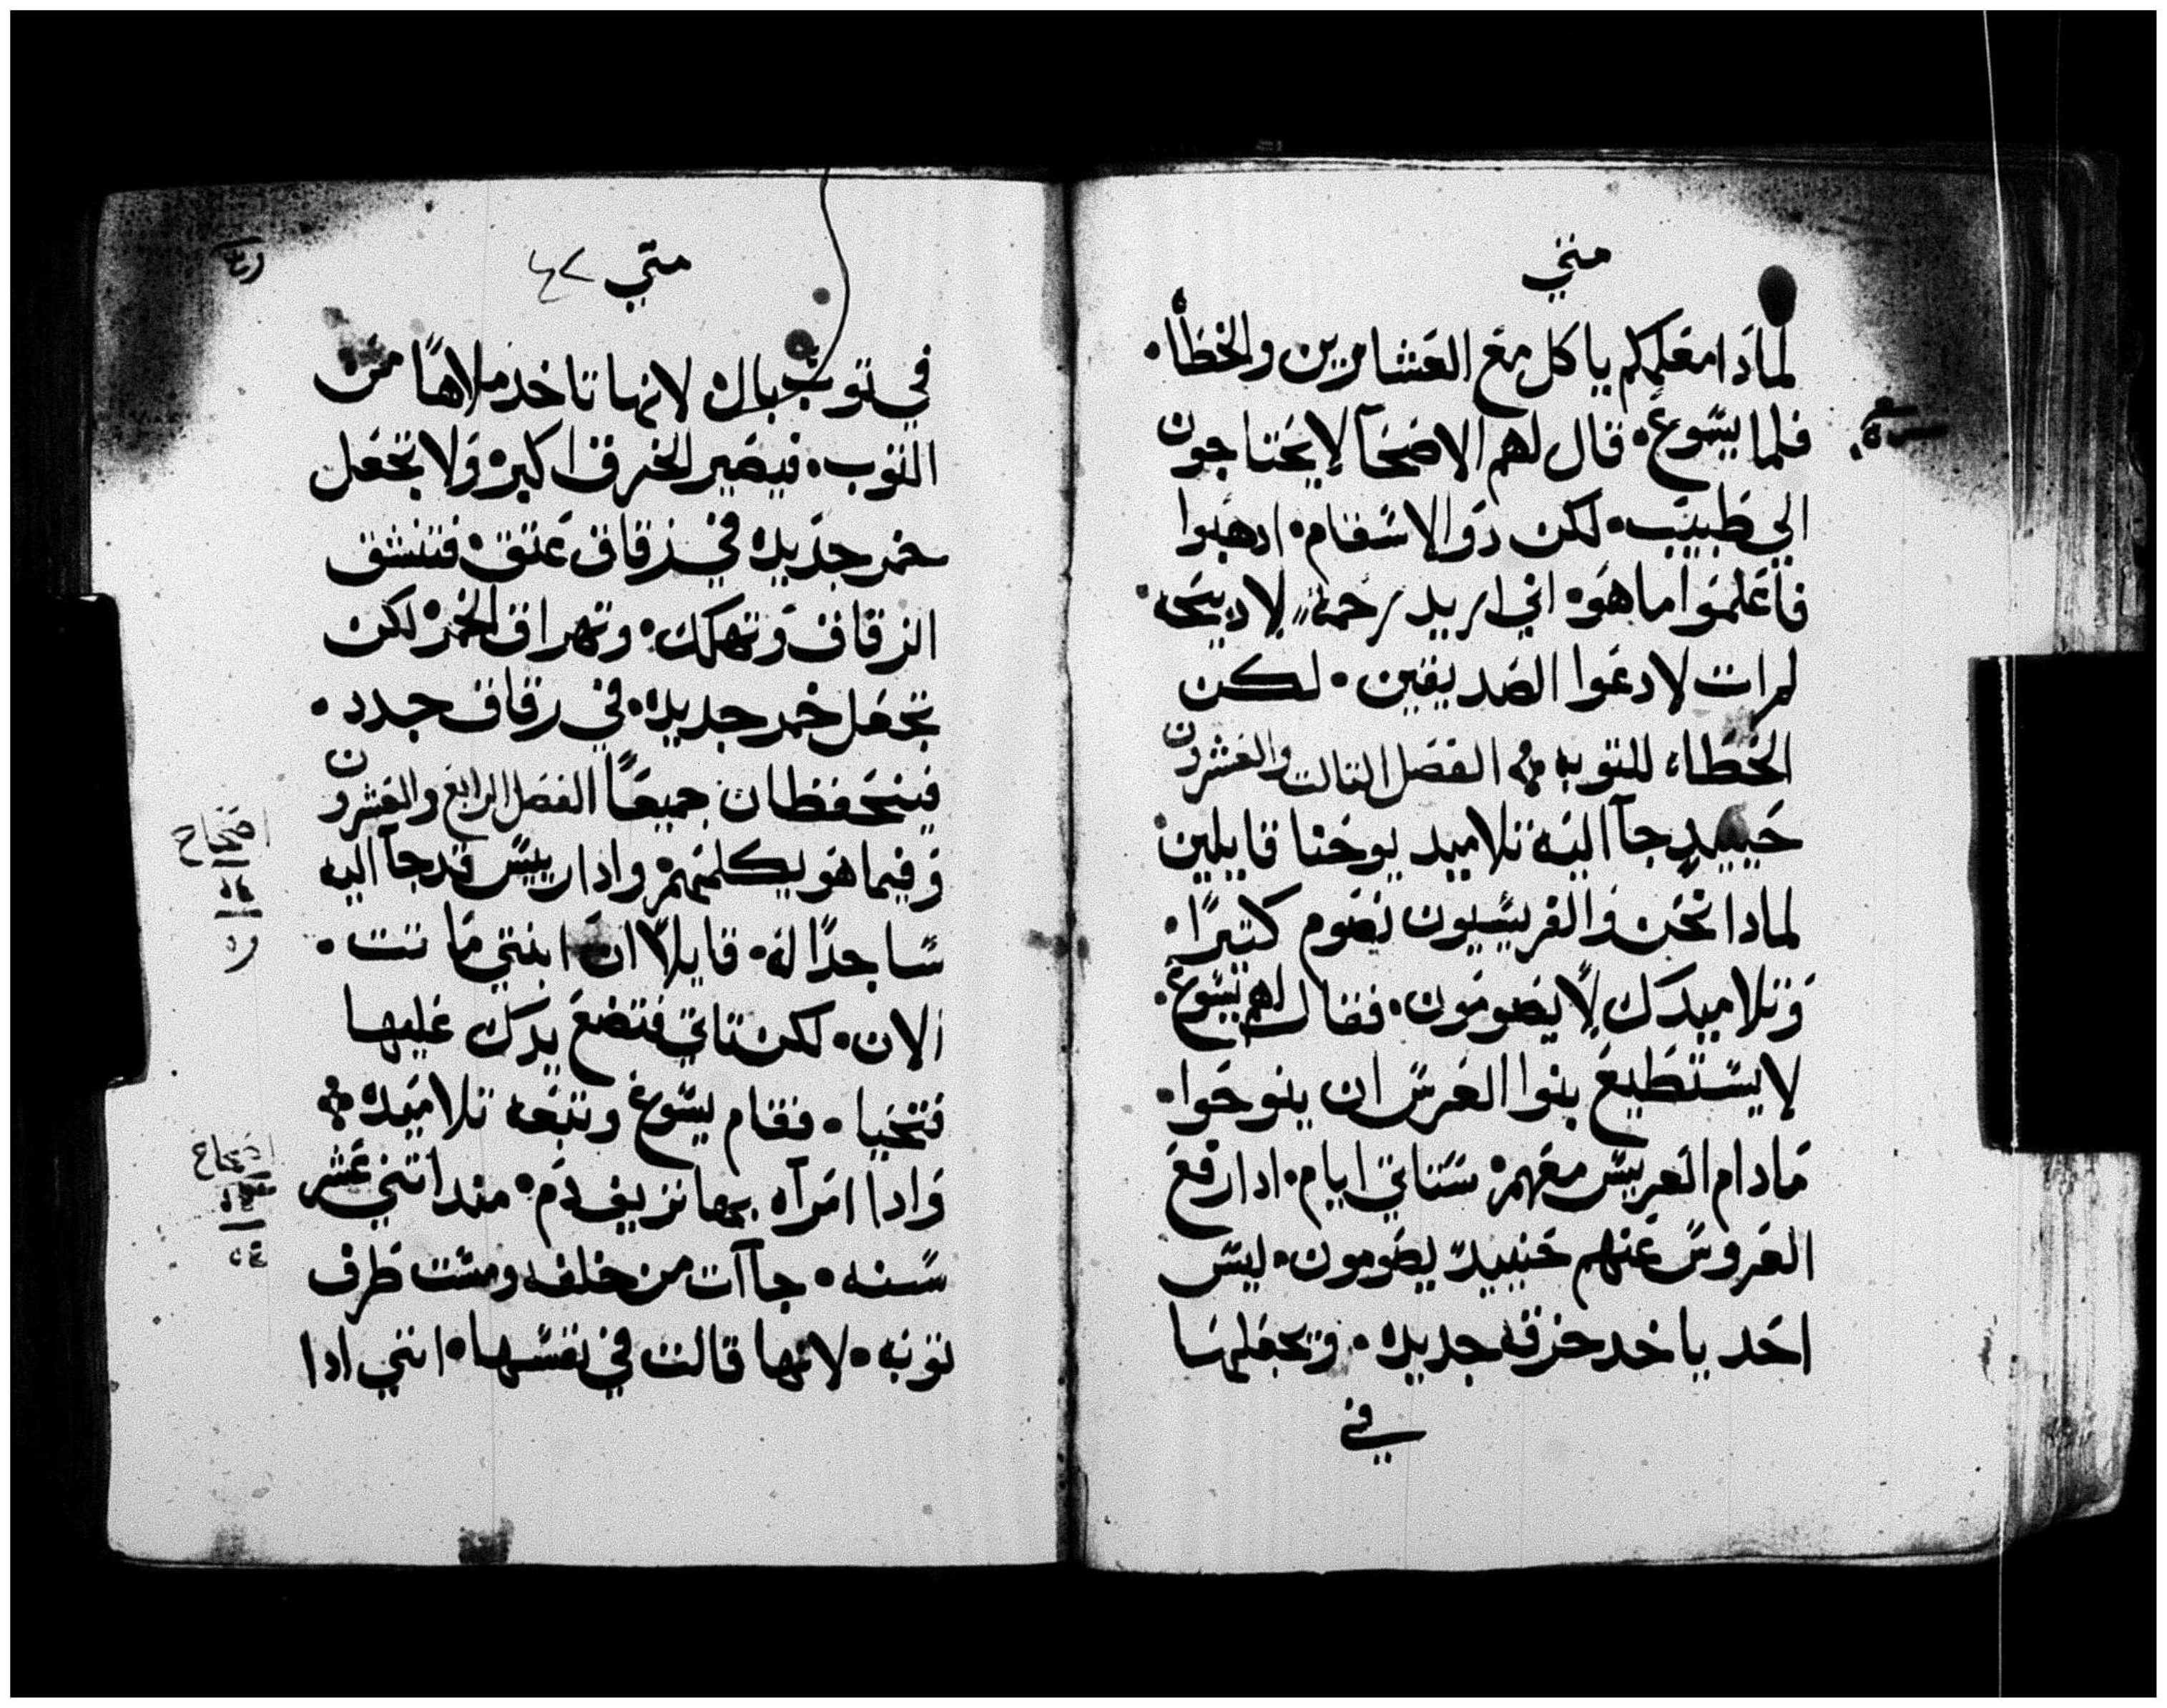 متي
لمادا معلمكم ياكل مع العشارين والخطاه.
فلما يسوع. قال لهم الاصحآ لا يحتاجون
الي طبيب. لكن دو الاسقام. ادهبوا
فاعلموا ما هو. اني اريد رحمة لا ديحه
لم ات لادعوا الصديقين. لكن
الخطاه للتوبه الفصل التالت والعشرون
حينيد جآ اليه تلاميد يوحنا قايلين
لمادا نحن والفريسيون نصوم كتيرًا.
وتلاميدك لا يصومون. فقال لهم يسوع.
لا يستطيع بنوا العرس ان ينوحوا.
مادام العريس معهم. ستاتي ايام. ادا رفع
العروس عنهم حينيد يصومون. ليس
احد ياخد خرقه جديده. وتجعلها
في
متي ٤٢
في توب بال لانها تاخد ملاها من
التوب. فيصير الخرق اكبر. ولا تجعل
خمر جديده في زقاق عتق. فتنشق
الزقاق وتهلك. وتهراق الخمر. لكن
تجعل خمر جديده. في زقاق جدد.
فيتحفظان جميعًا الفصل الرابع والعشرون
وفيما هو يكلمهم. وادا رييس قد جآ اليه
ساجدًا له. قايلا ان ابنتي ماتت.
الان. لكن تاتي فتضع يدك عليها
فتحيا. فقام يسوع وتبعه تلاميده
وادا امرآه بها نزيف دم. مند اتني عشر
سنه. جآات من خلفه ومست طرف
توبه. لانها قالت في نفسها. انني ادا
اصحاح